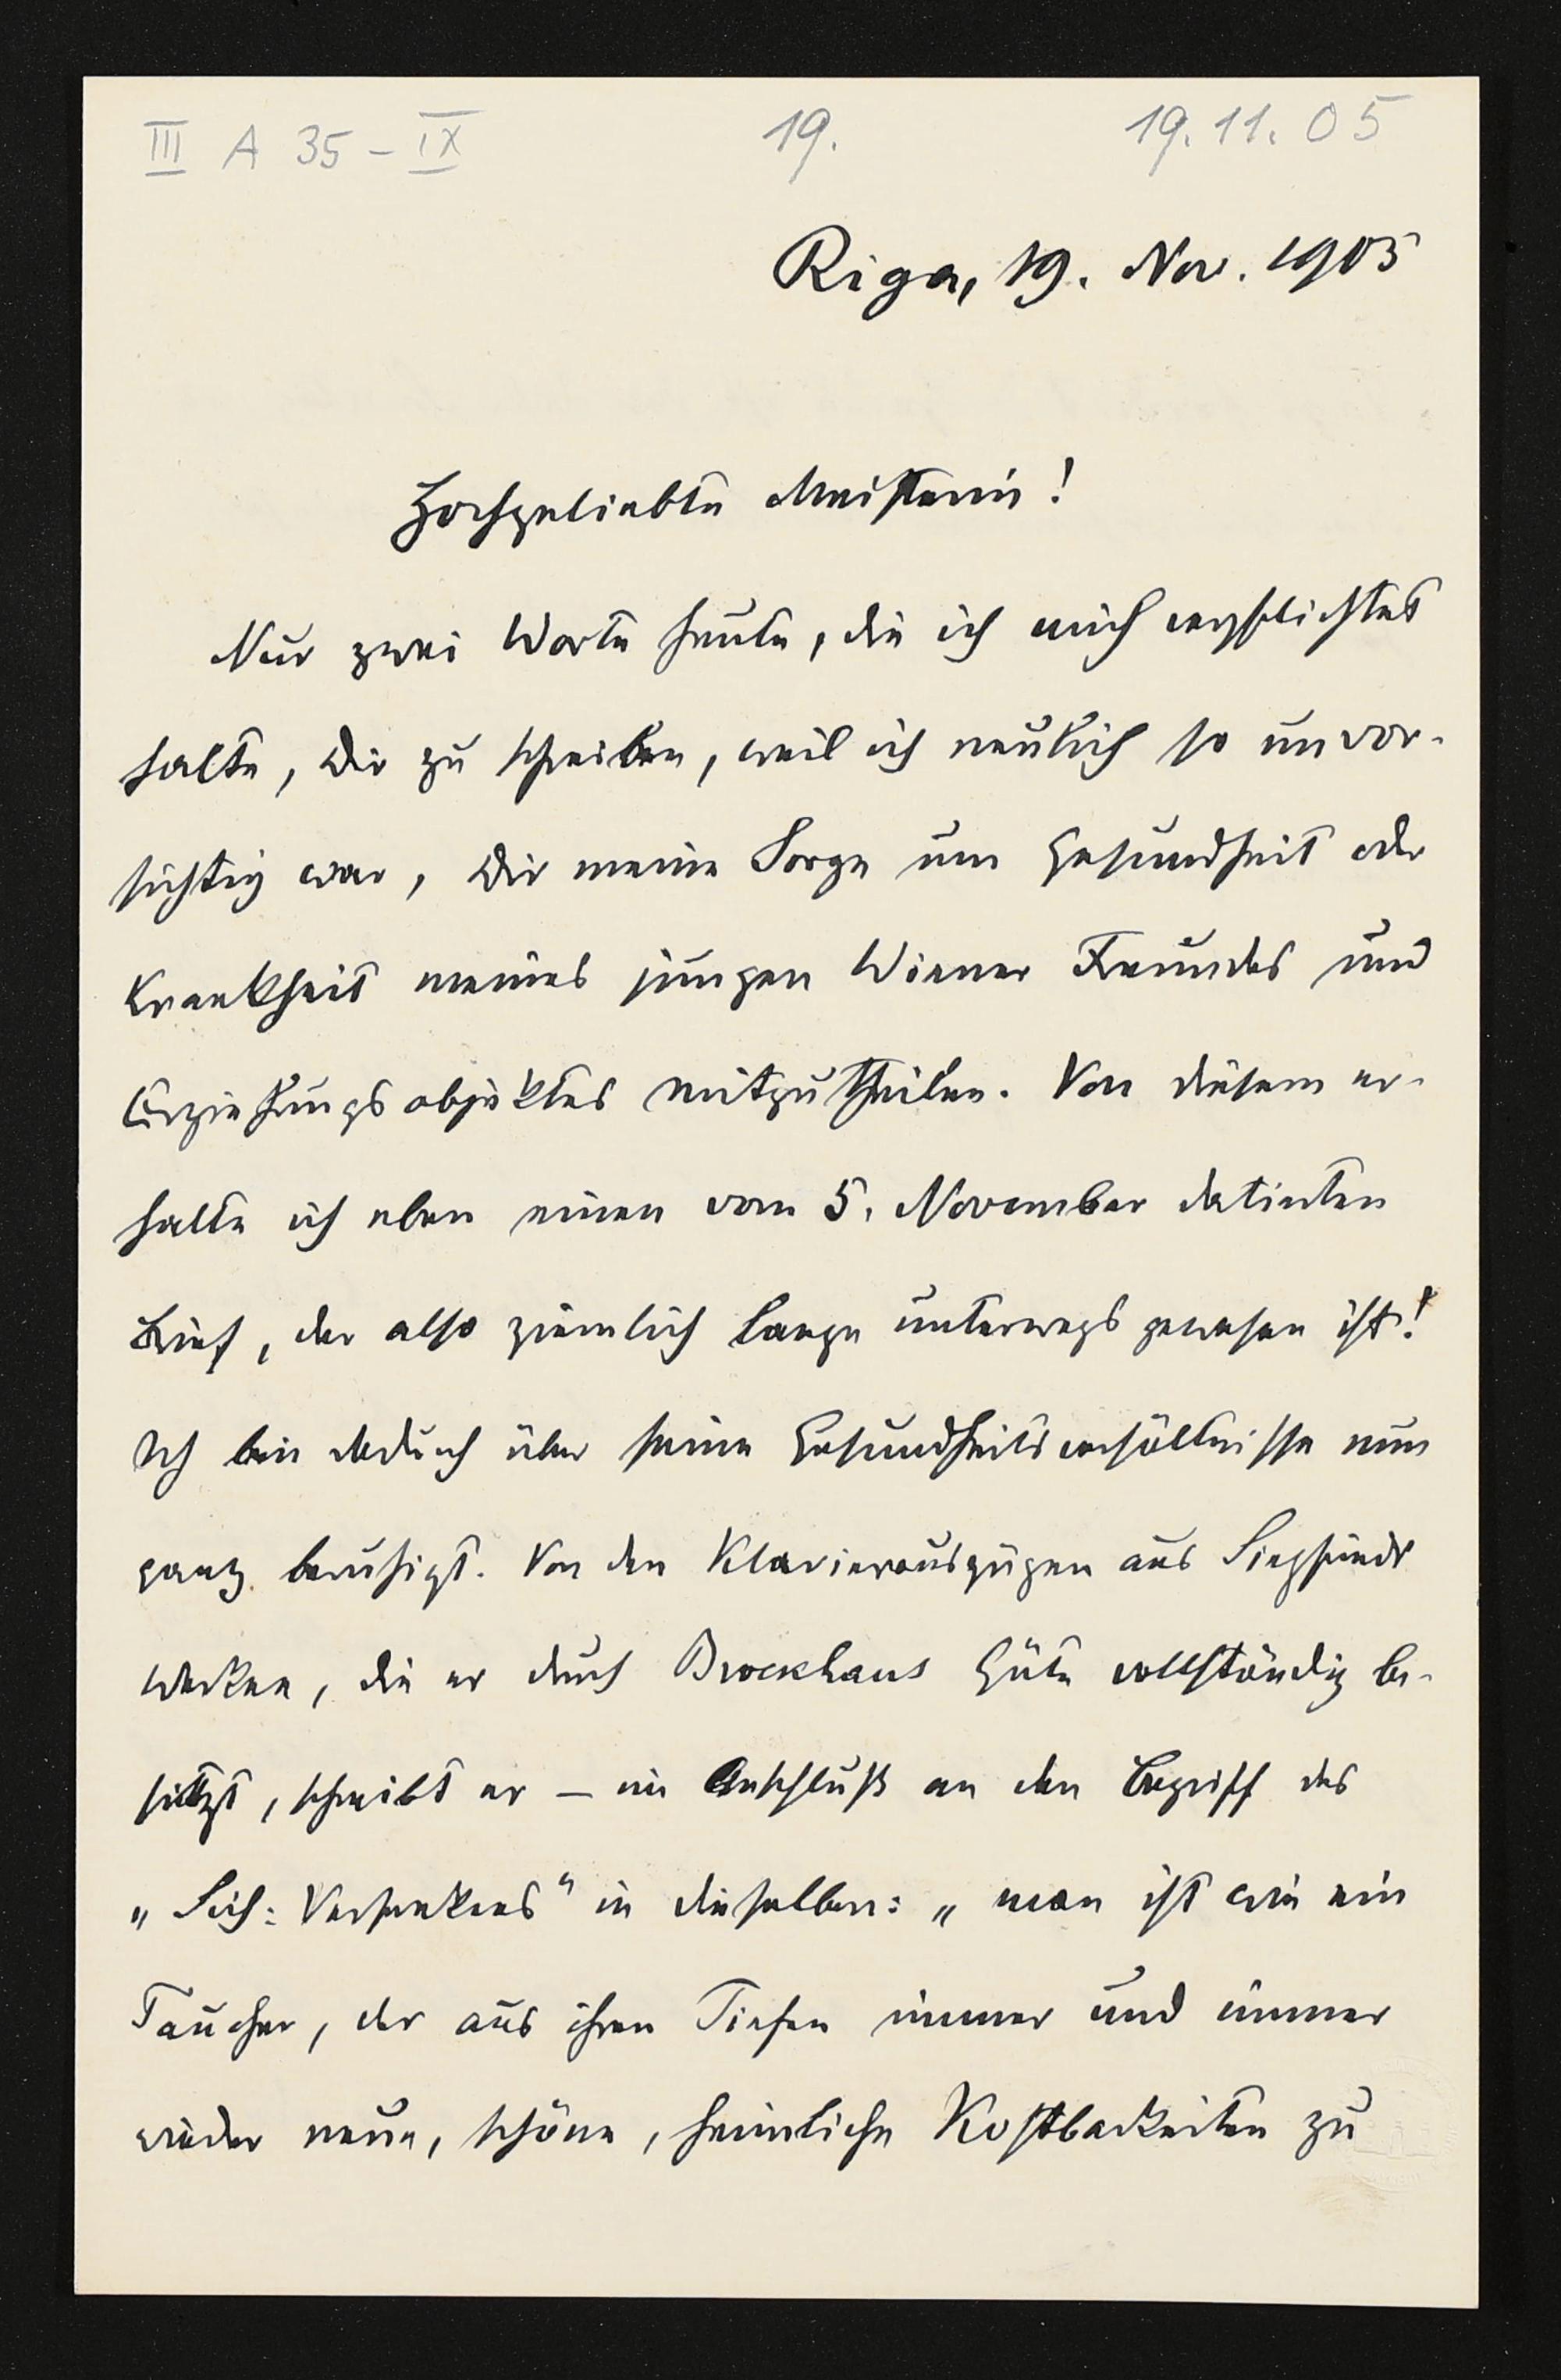 III A 35 – IX 19. 19.11.05
Riga, 19. Nov. 1905
Hochgeliebte Meisterin!
Nur zwei Worte heute, die ich mich verpflichtet
halte, Dir zu schreiben, weil ich neulich so unvor-
sichtig war, Dir meine Sorge um Gesundheit oder
Krankheit meines jungen Wiener Freundes und
Erziehungsobjektes mitzutheilen. Von diesem er-
halte ich eben einen vom 5. November datirten
Brief, der also ziemlich lange unterwegs gewesen ist!
Ich bin dadurch über seine Gesundheitsverhältnisse nun
ganz beruhigt. Von den Klavierauszügen aus Siegfrieds
Werken, die er durch Brockhaus Güte vollständig be-
sitzt, schreibt er – im Anschluß an den Begriff des
„Sich: Versenkens" in dieselben: „man ist wie ein
Taucher, der aus ihren Tiefen immer und immer
wieder neue, schöne, heimliche Kostbarkeiten zu